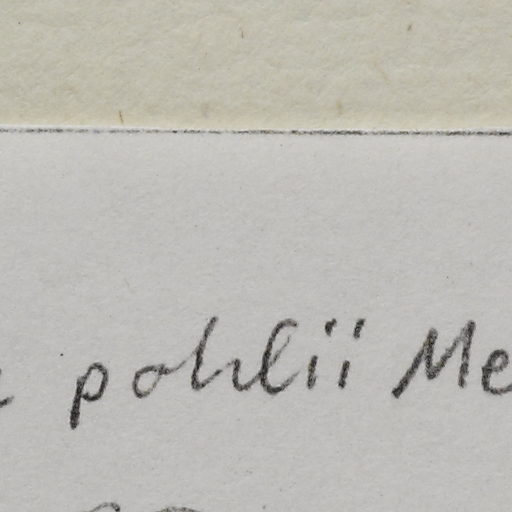 pohlii Me